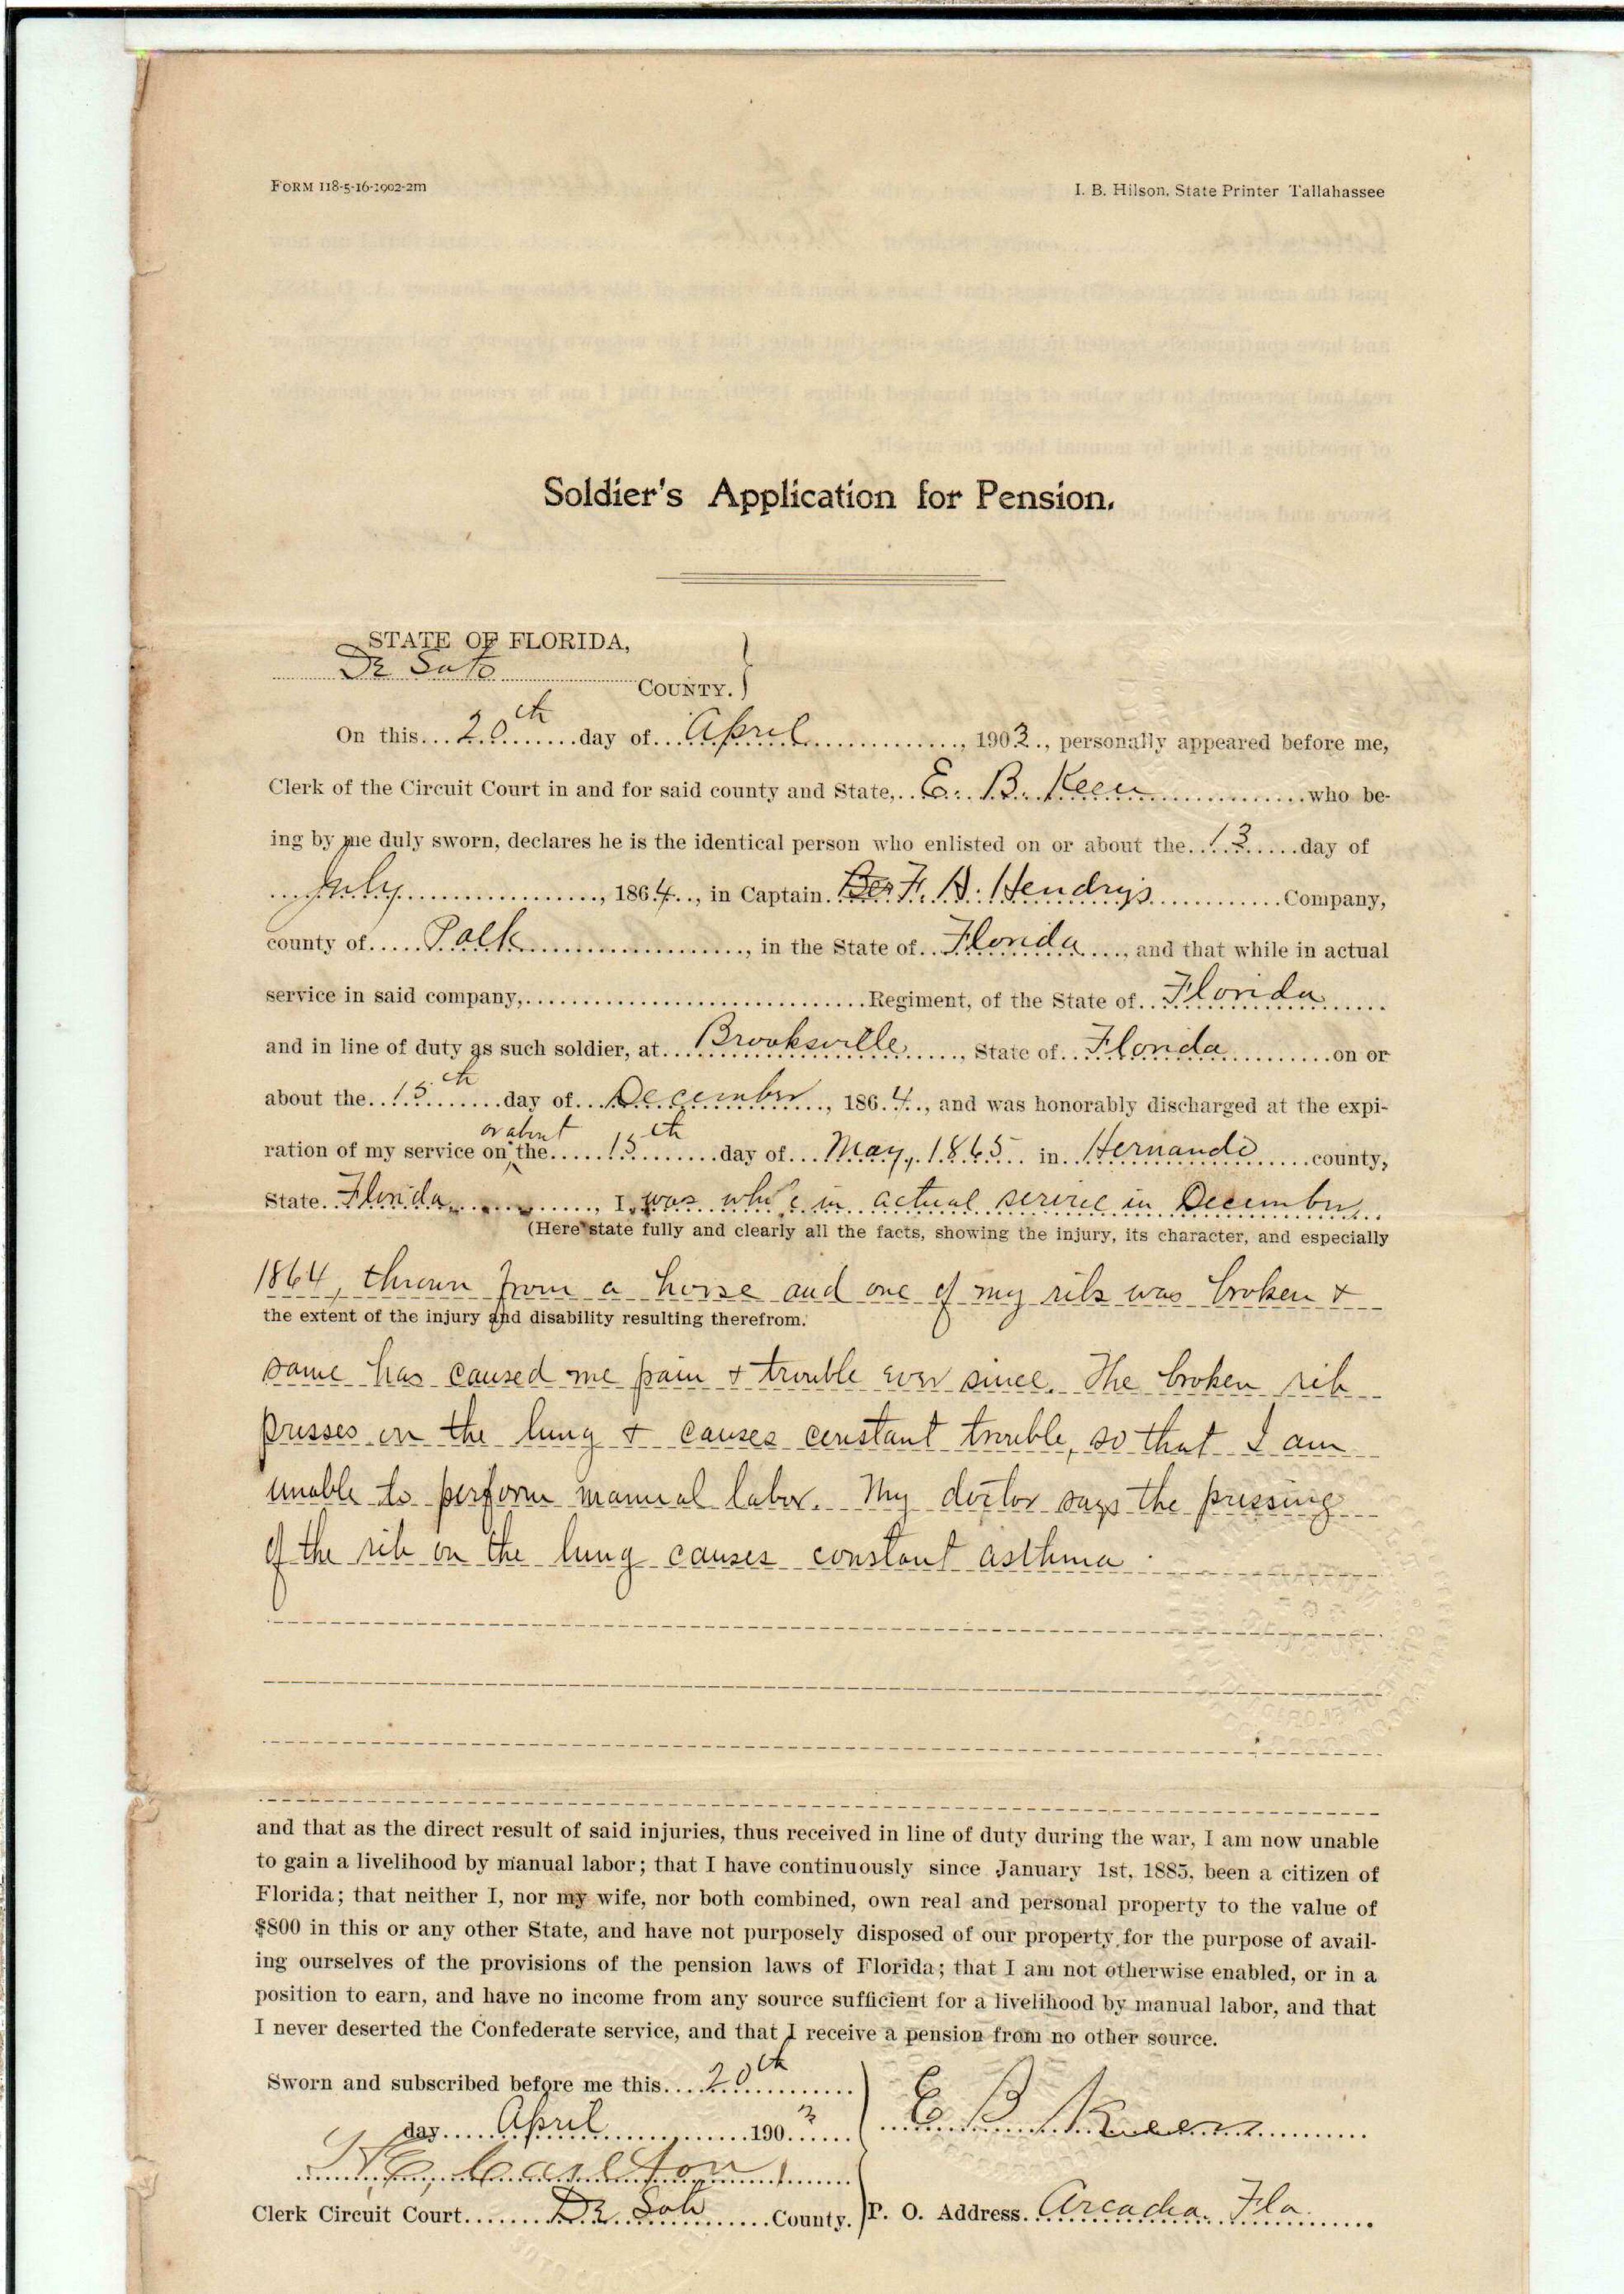 FORM 118-5-16-1902-2m
I. B. Hilson, State Printer Tallahassee
Soldier's Application for Pension.
STATE OF FLORIDA,
De Soto COUNTY.
On this 20th day of April, 1903, personally appeared before me,
Clerk of the Circuit Court in and for said county and State, E. B. Keen who be-
ing by me duly sworn, declares he is the identical person who enlisted on or about the 13 day of
July, 1864, in Captain F. A. Hendrys Company,
county of Polk, in the State of Florida, and that while in actual
service in said company, Regiment, of the State of Florida
and in line of duty as such soldier, at Brooksville, State of Florida on or
about the 15th day of December, 1864, and was honorably discharged at the expi-
ration of my service on or about the 15th day of May, 1865 in Hernando county,
State Florida, I was while in actual service in December
(Here state fully and clearly all the facts, showing the injury, its character, and especially
1864, thrown from a horse and one of my ribs was broken &
the extent of the injury and disability resulting therefrom.
same has caused me pain & trouble ever since. The broken rib
presses on the lung & causes constant trouble, so that I am
unable to perform manual labor. My doctor says the pressing
of the rib on the lung causes constant asthma.
and that as the direct result of said injuries, thus received in line of duty during the war, I am now unable
to gain a livelihood by manual labor; that I have continuously since January 1st, 1885, been a citizen of
Florida; that neither I, nor my wife, nor both combined, own real and personal property to the value of
$800 in this or any other State, and have not purposely disposed of our property for the purpose of avail-
ing ourselves of the provisions of the pension laws of Florida; that I am not otherwise enabled, or in a
position to earn, and have no income from any source sufficient for a livelihood by manual labor, and that
I never deserted the Confederate service, and that I receive a pension from no other source.
Sworn and subscribed before me this 20th
day April 1903
E B Keen
Carlton
Clerk Circuit Court De Soto County.
P. O. Address. Arcadia Fla.